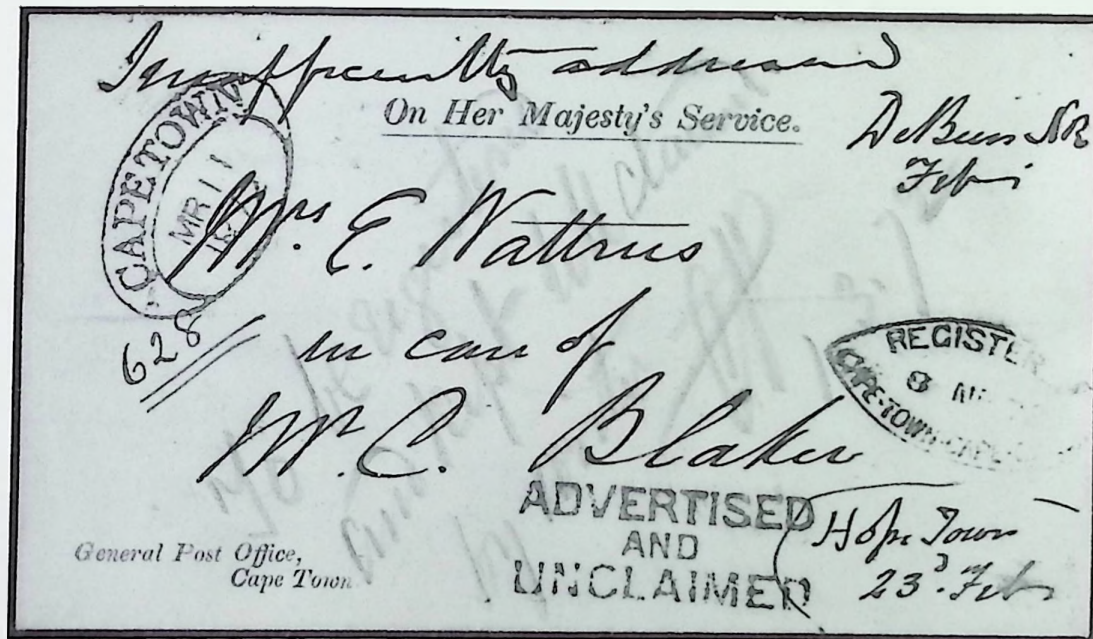 Insufficiently addressed
On Her Majesty's Service.
De Beers N.R.
Feb
CAPETOWN
MR 11
Mrs. E. Wattrus
628
in care of
Mr. C. Blaker
REGISTER
8
CAPE-TOWN-CAPE
ADVERTISED
AND
UNCLAIMED
Hope Town
23d. Feb
General Post Office,
Cape Town